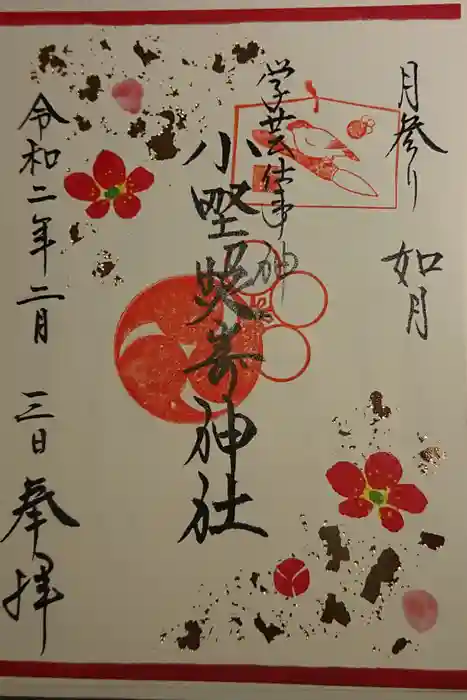 月参り 如月
学芸仕事神
小野照崎神社
令和二年二月 三日
奉拝